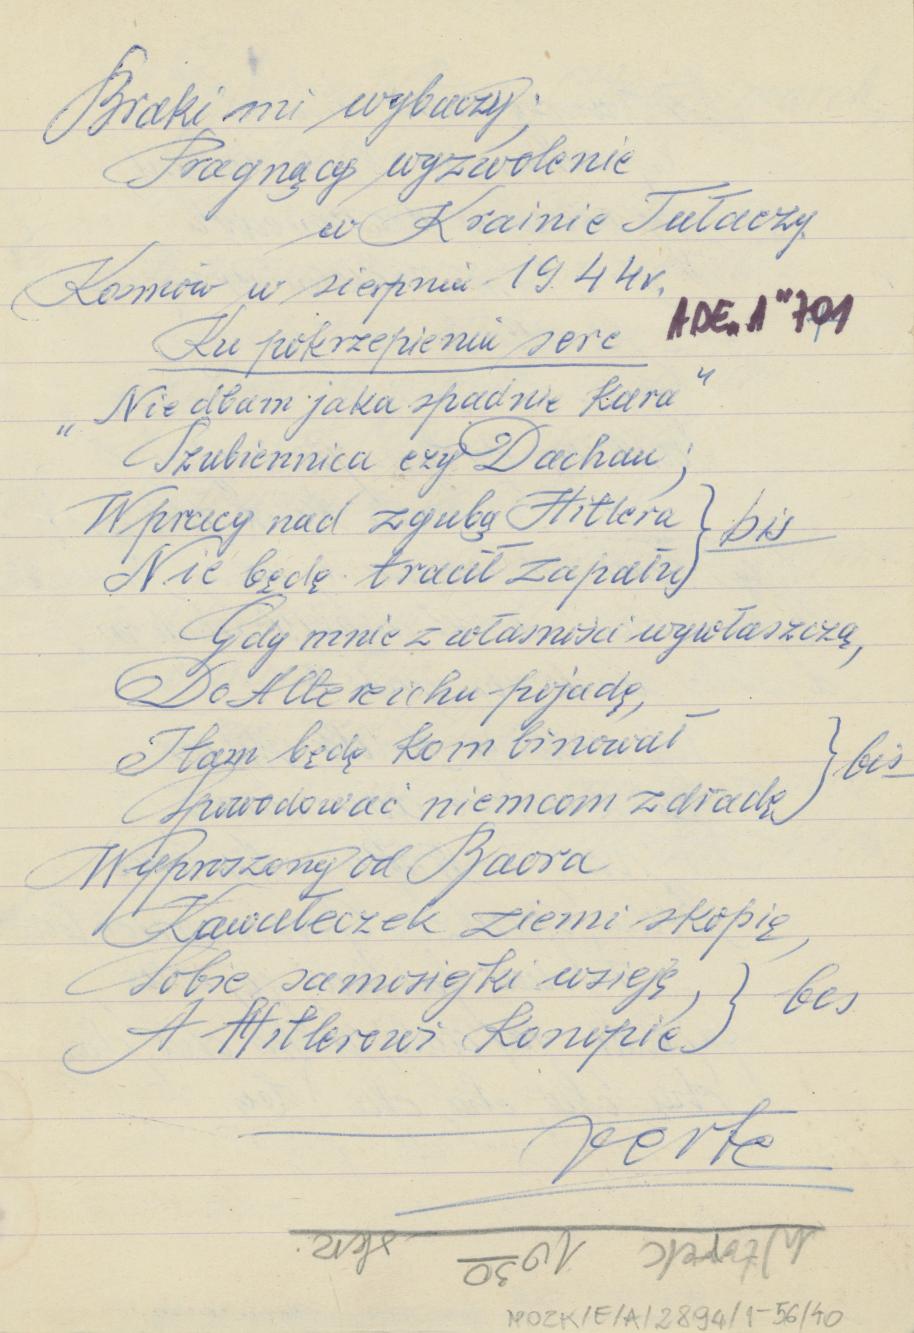 Braki mi wybaczy;
Pragnący wyzwolenie
w Krainie Tułaczy
Kosmów w sierpniu 1944r.
ADE„A" 701
Ku pokrzepieniu serc
„Nie dbam jaka spadnie kara"
Szubiennica czy Dachau;
W pracy nad zgubą Hitlera
Nie będę tracił zapału
} bis
Gdy mnie z własności wywłaszczą,
Do Altereichu pojadę,
I tam będę kombinował
Spowodować niemcom zdradę
} bis
Wyproszony od Baora
Kawałeczek ziemi skopię,
Sobie samosiejki wsieję,
A Hitlerowi Konopie
} bis
verte
Wtorek 19 30
MOZK/E/A/2894/1-56/40